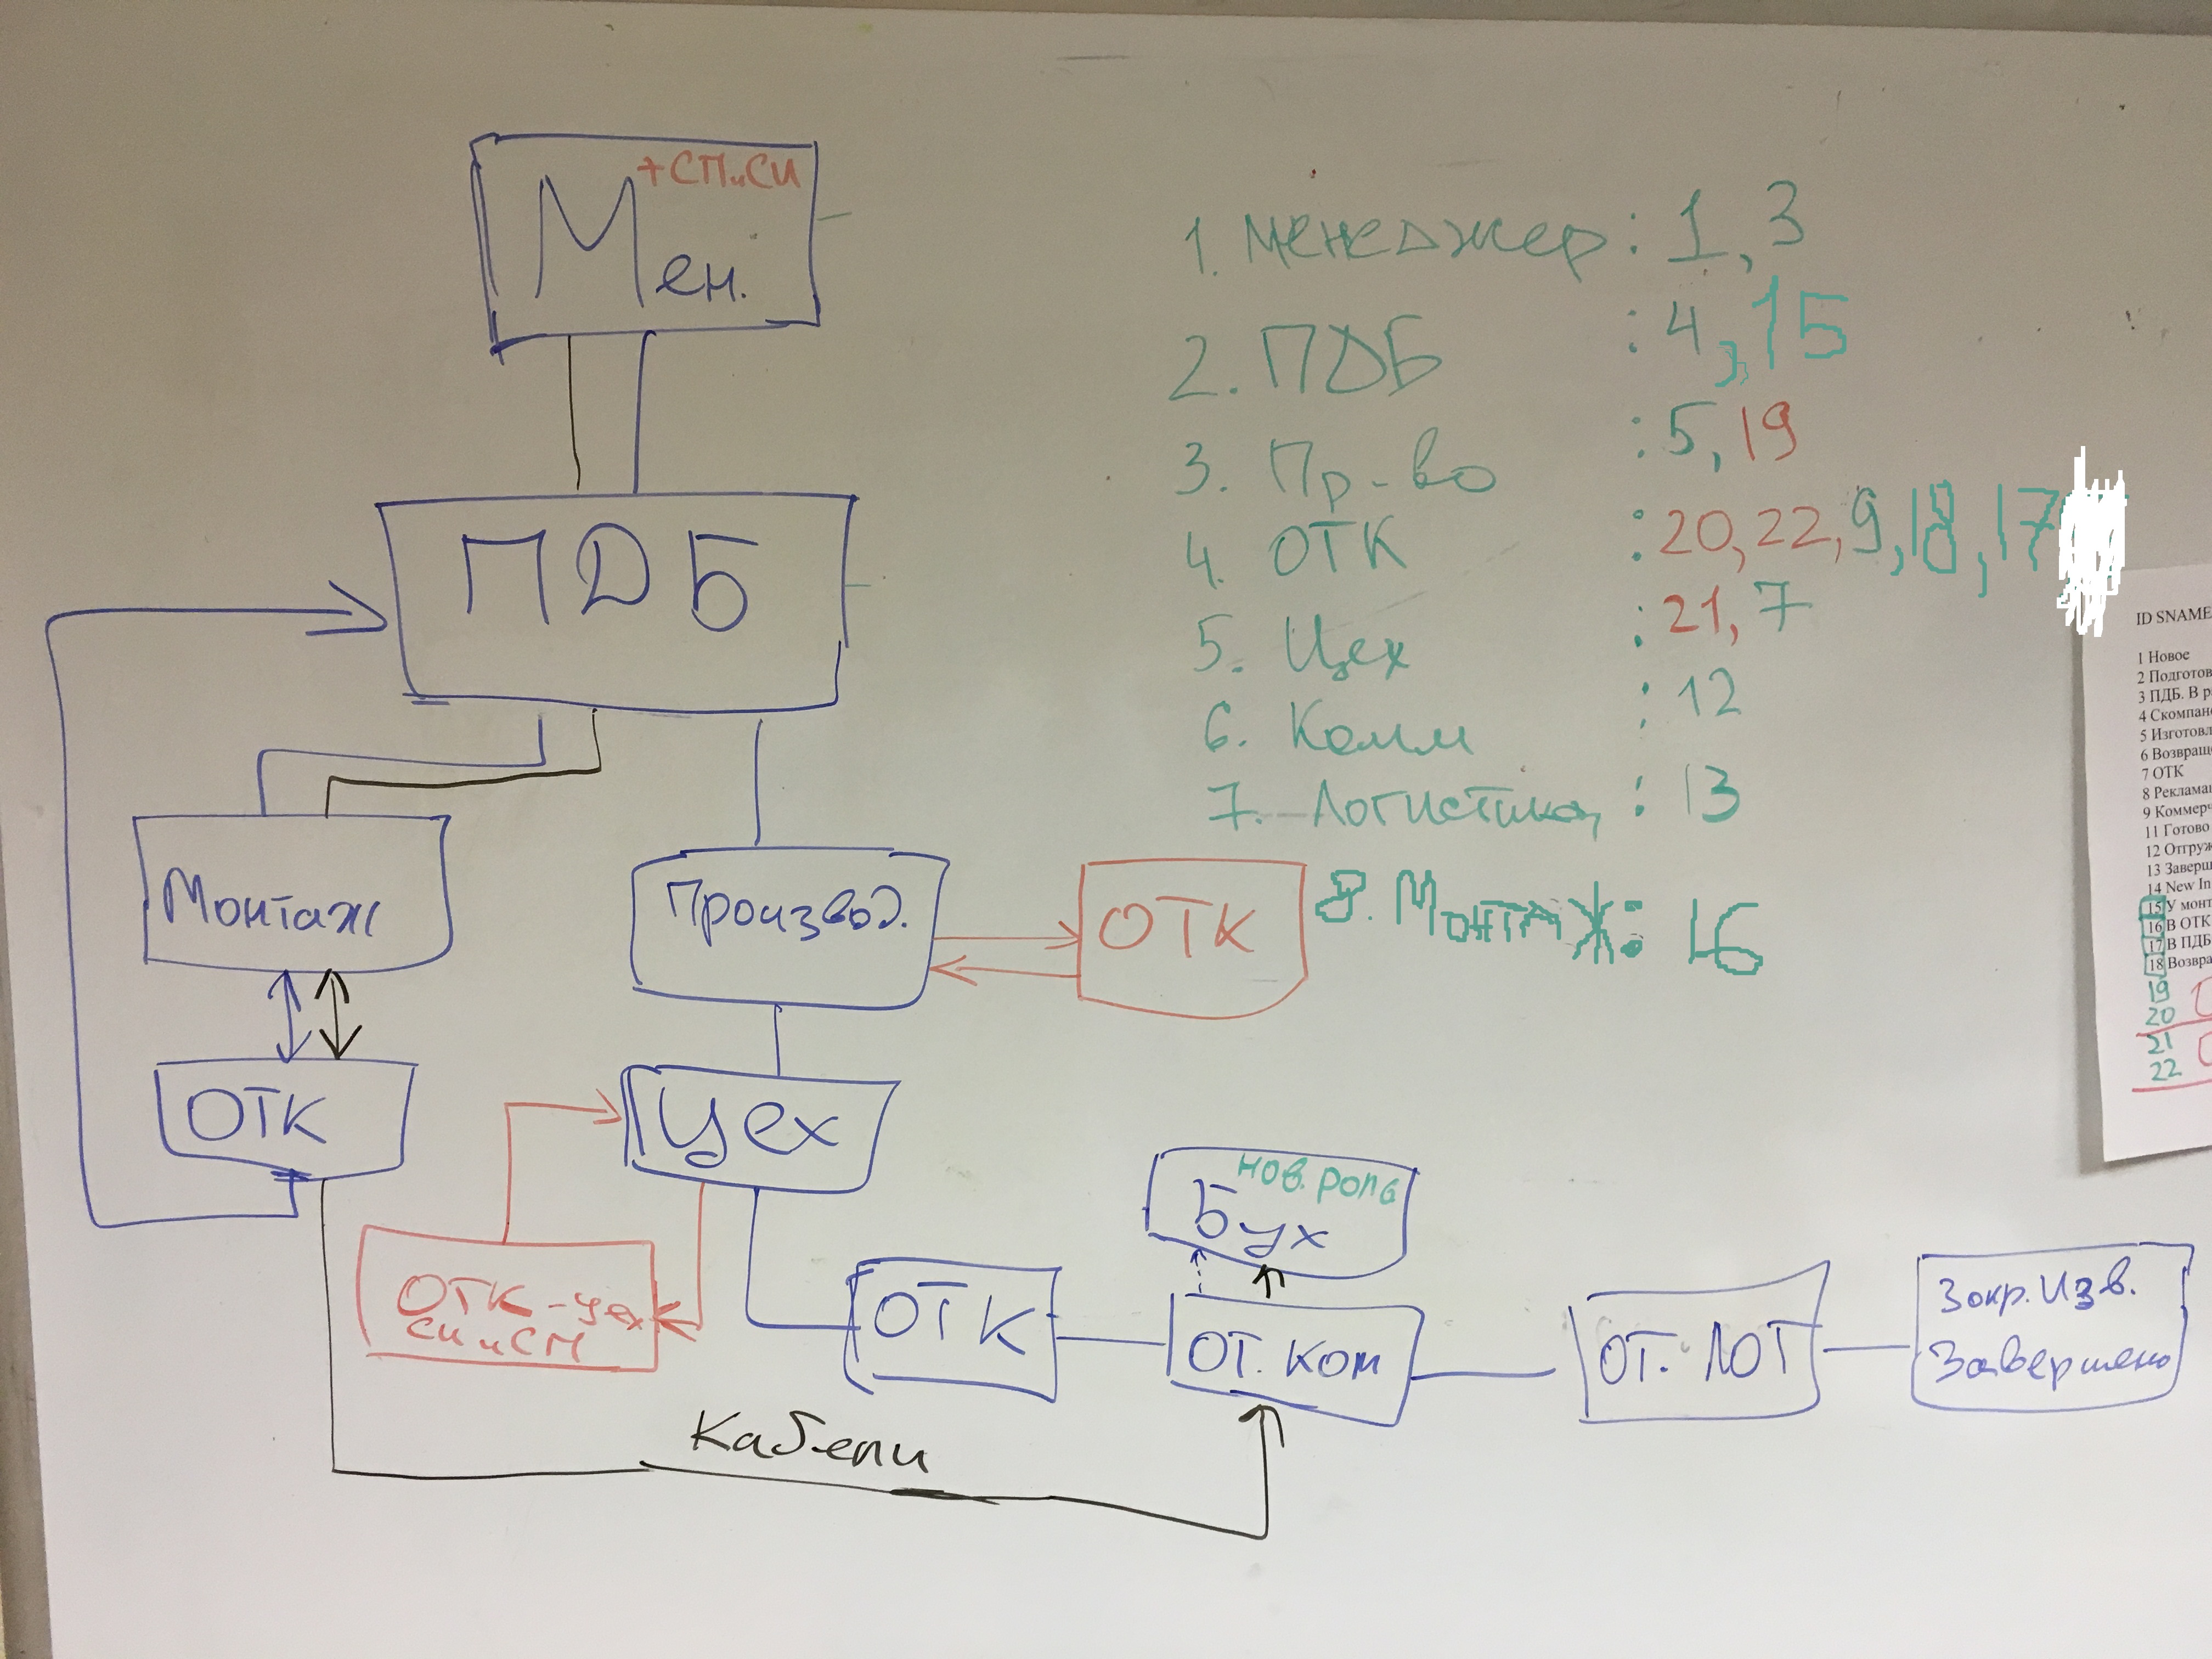 +СПиСИ
Мен.
ПДБ
Монтаж
Производ.
ОТК
ОТК
Цех
ОТК-цех
СИиСП
ОТК
нов. роль
Бух
ОТ. КОМ
ОТ. ЛОГ
Закр. Изв.
Завершено
Кабели
1. Менеджер : 1, 3
2. ПДБ : 4, 15
3. Пр-во : 5, 19
4. ОТК : 20, 22, 9, 18, 17
5. Цех : 21, 7
6. Комм : 12
7. Логистика : 13
8. Монтаж: 16
ID SNAME
1 Новое
2 Подготов
3 ПДБ. В р
4 Скомпано
5 Изготовл
6 Возвраще
7 ОТК
8 Рекламац
9 Коммерч
11 Готово
12 Отгруж
13 Заверш
14 New In
15 У монт
16 В ОТК
17 В ПДБ
18 Возвра
19
20
21
22